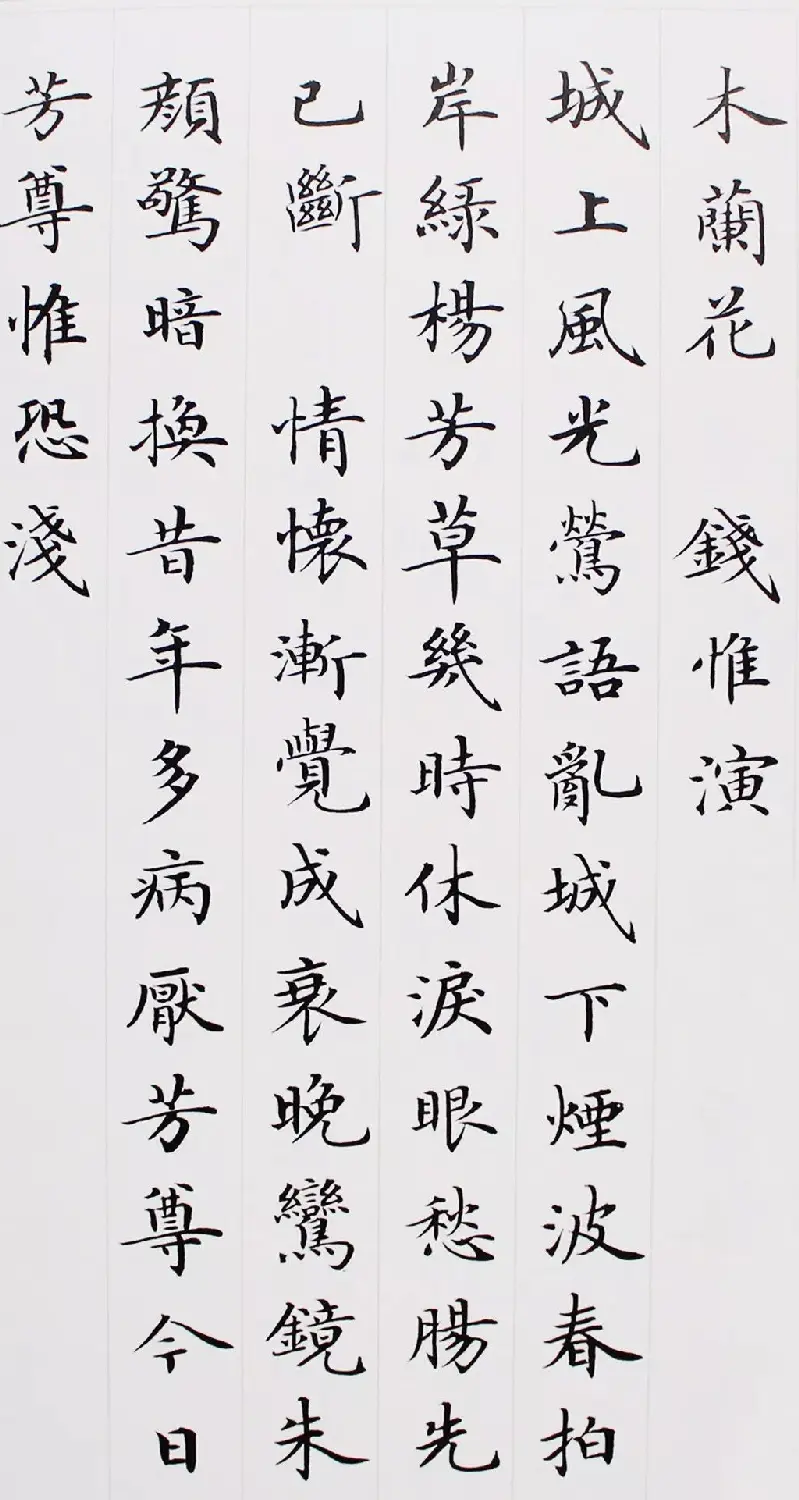 木蘭花 錢惟演
城上風光鶯語亂城下煙波春拍
岸綠楊芳草幾時休淚眼愁腸先
已斷 情懷漸覺成衰晚鸞鏡朱
顏驚暗換昔年多病厭芳尊今日
芳尊惟恐淺